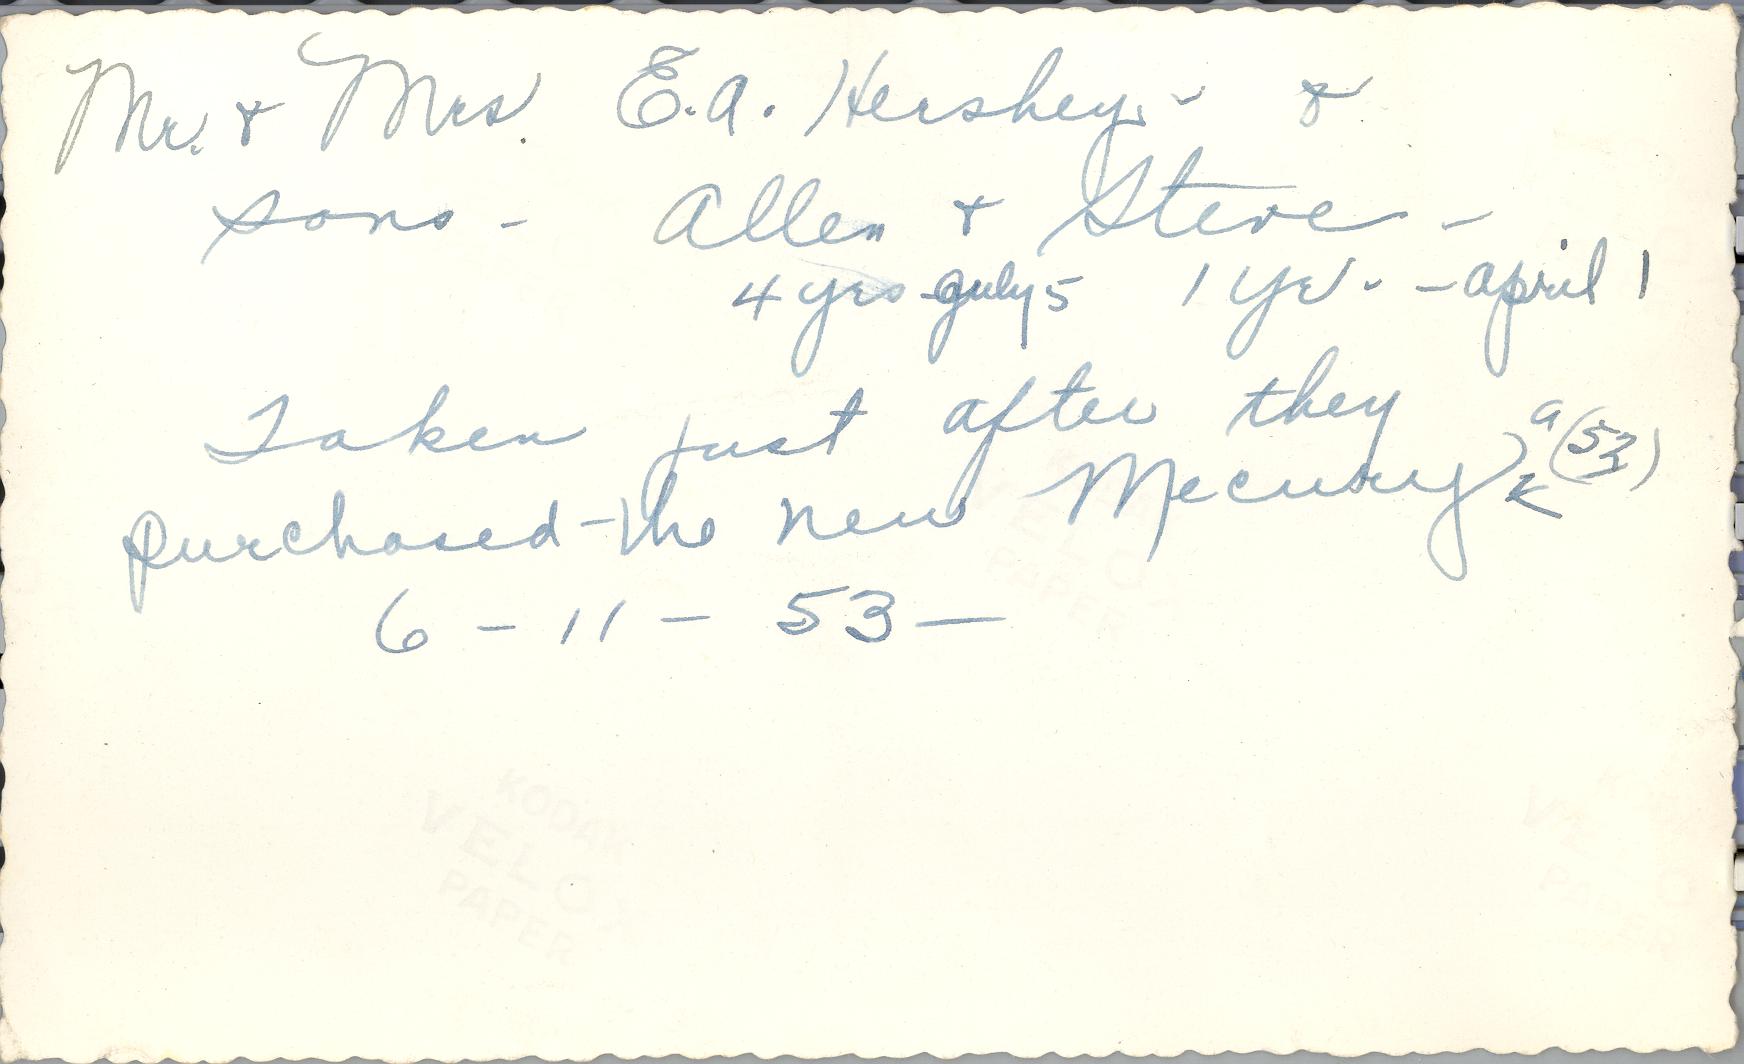 Mr. & Mrs. E.A. Hershey - &
sons - Allen & Steve -
4 yrs - July 5 1 yr. - April 1
Taken just after they
purchased - the new Mecury a (53)
6 - 11 - 53 -
KODAK
VELOX
PAPER
VELOX
PAPER
VELO
PAPER